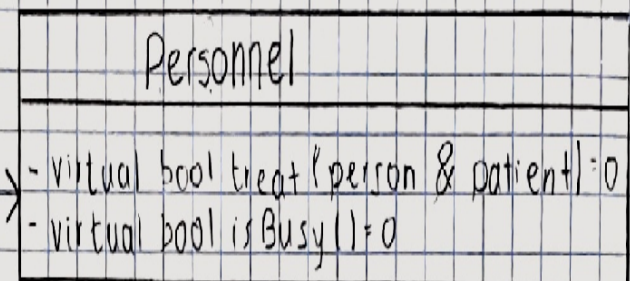 Personnel
- virtual bool treat (person & patient) = 0
- virtual bool isBusy() = 0